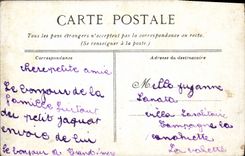 CARTE POSTALE
Tous les pays étrangers n'acceptent pas la correspondance au recto.
(Se renseigner à la poste)
Correspondance
Adresse du destinataire
chere petite amie
Le bonjour de la
famille surtout
du petit jaquot
envoie de lui
Le bonjour de
Melle Suzanne
villa
Campagne la
La valette